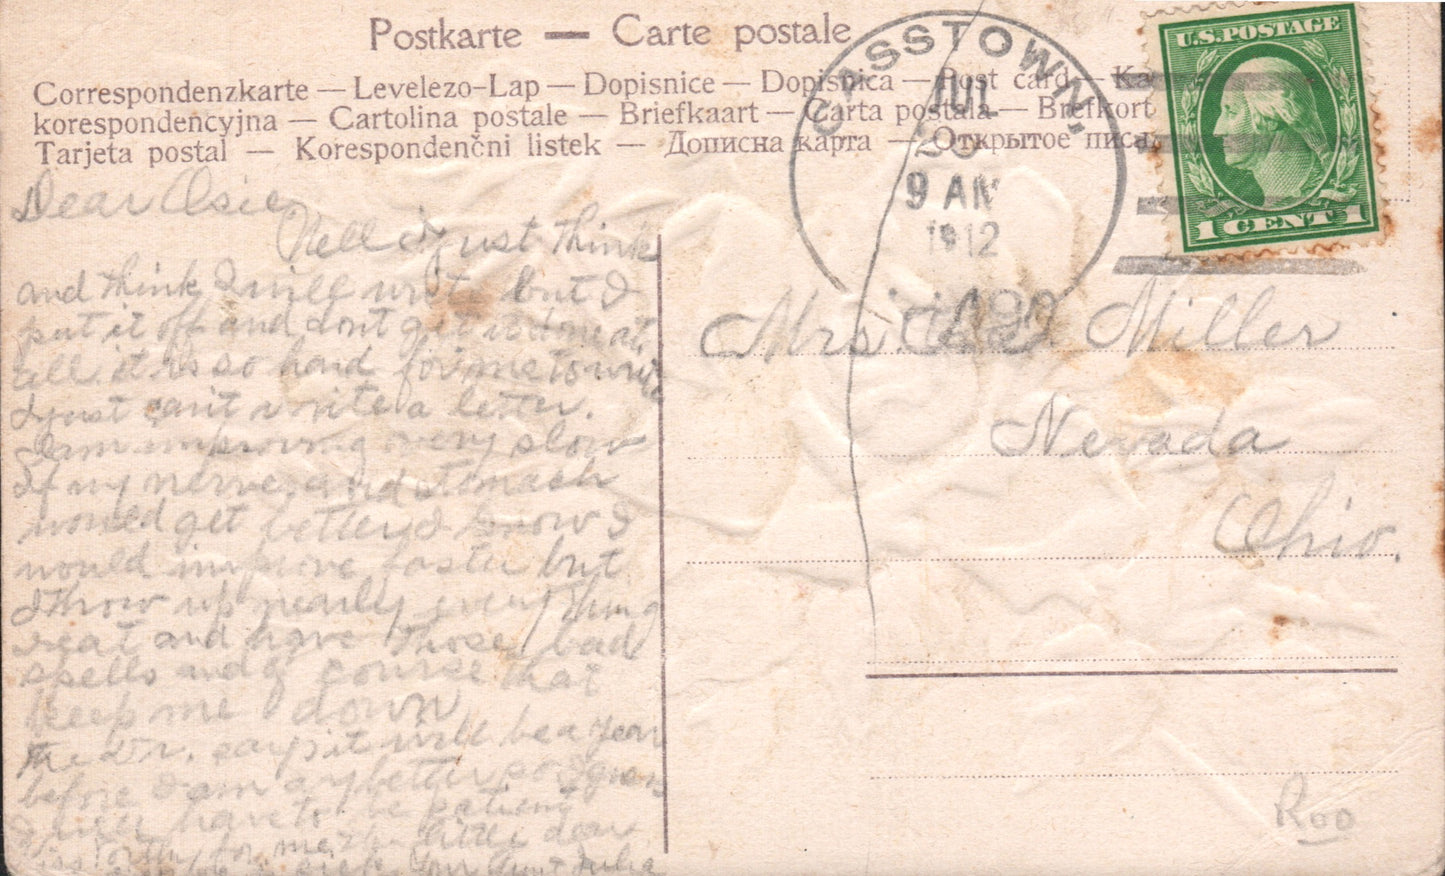 Postkarte — Carte postale
Correspondenzkarte — Levelezo-Lap — Dopisnice — Dopisnica — Post card — Ka
korespondencyjna — Cartolina postale — Briefkaart — Carta postala — Brefkort
Tarjeta postal — Korespondenčni listek — Дописна карта — Открытое писа
CASSTOWN,
9 AM
1912
U.S. POSTAGE
1 CENT 1
Dear Osie
Well I just think
and think I will write but I
put it off and dont get it done at
all. it is so hard for me to write
I just can't write a letter.
I am improving very slow
If my nerves and stomach
would get better I know I
would improve faster but
I throw up nearly every thing
I eat and have those bad
spells and of course that
keep me down
the Dr. says it will be a year
before I am any better so I guess
I will have to be patient
for me little dear
Aunt Julia
Mrs. Miller
Nevada
Ohio.
R00